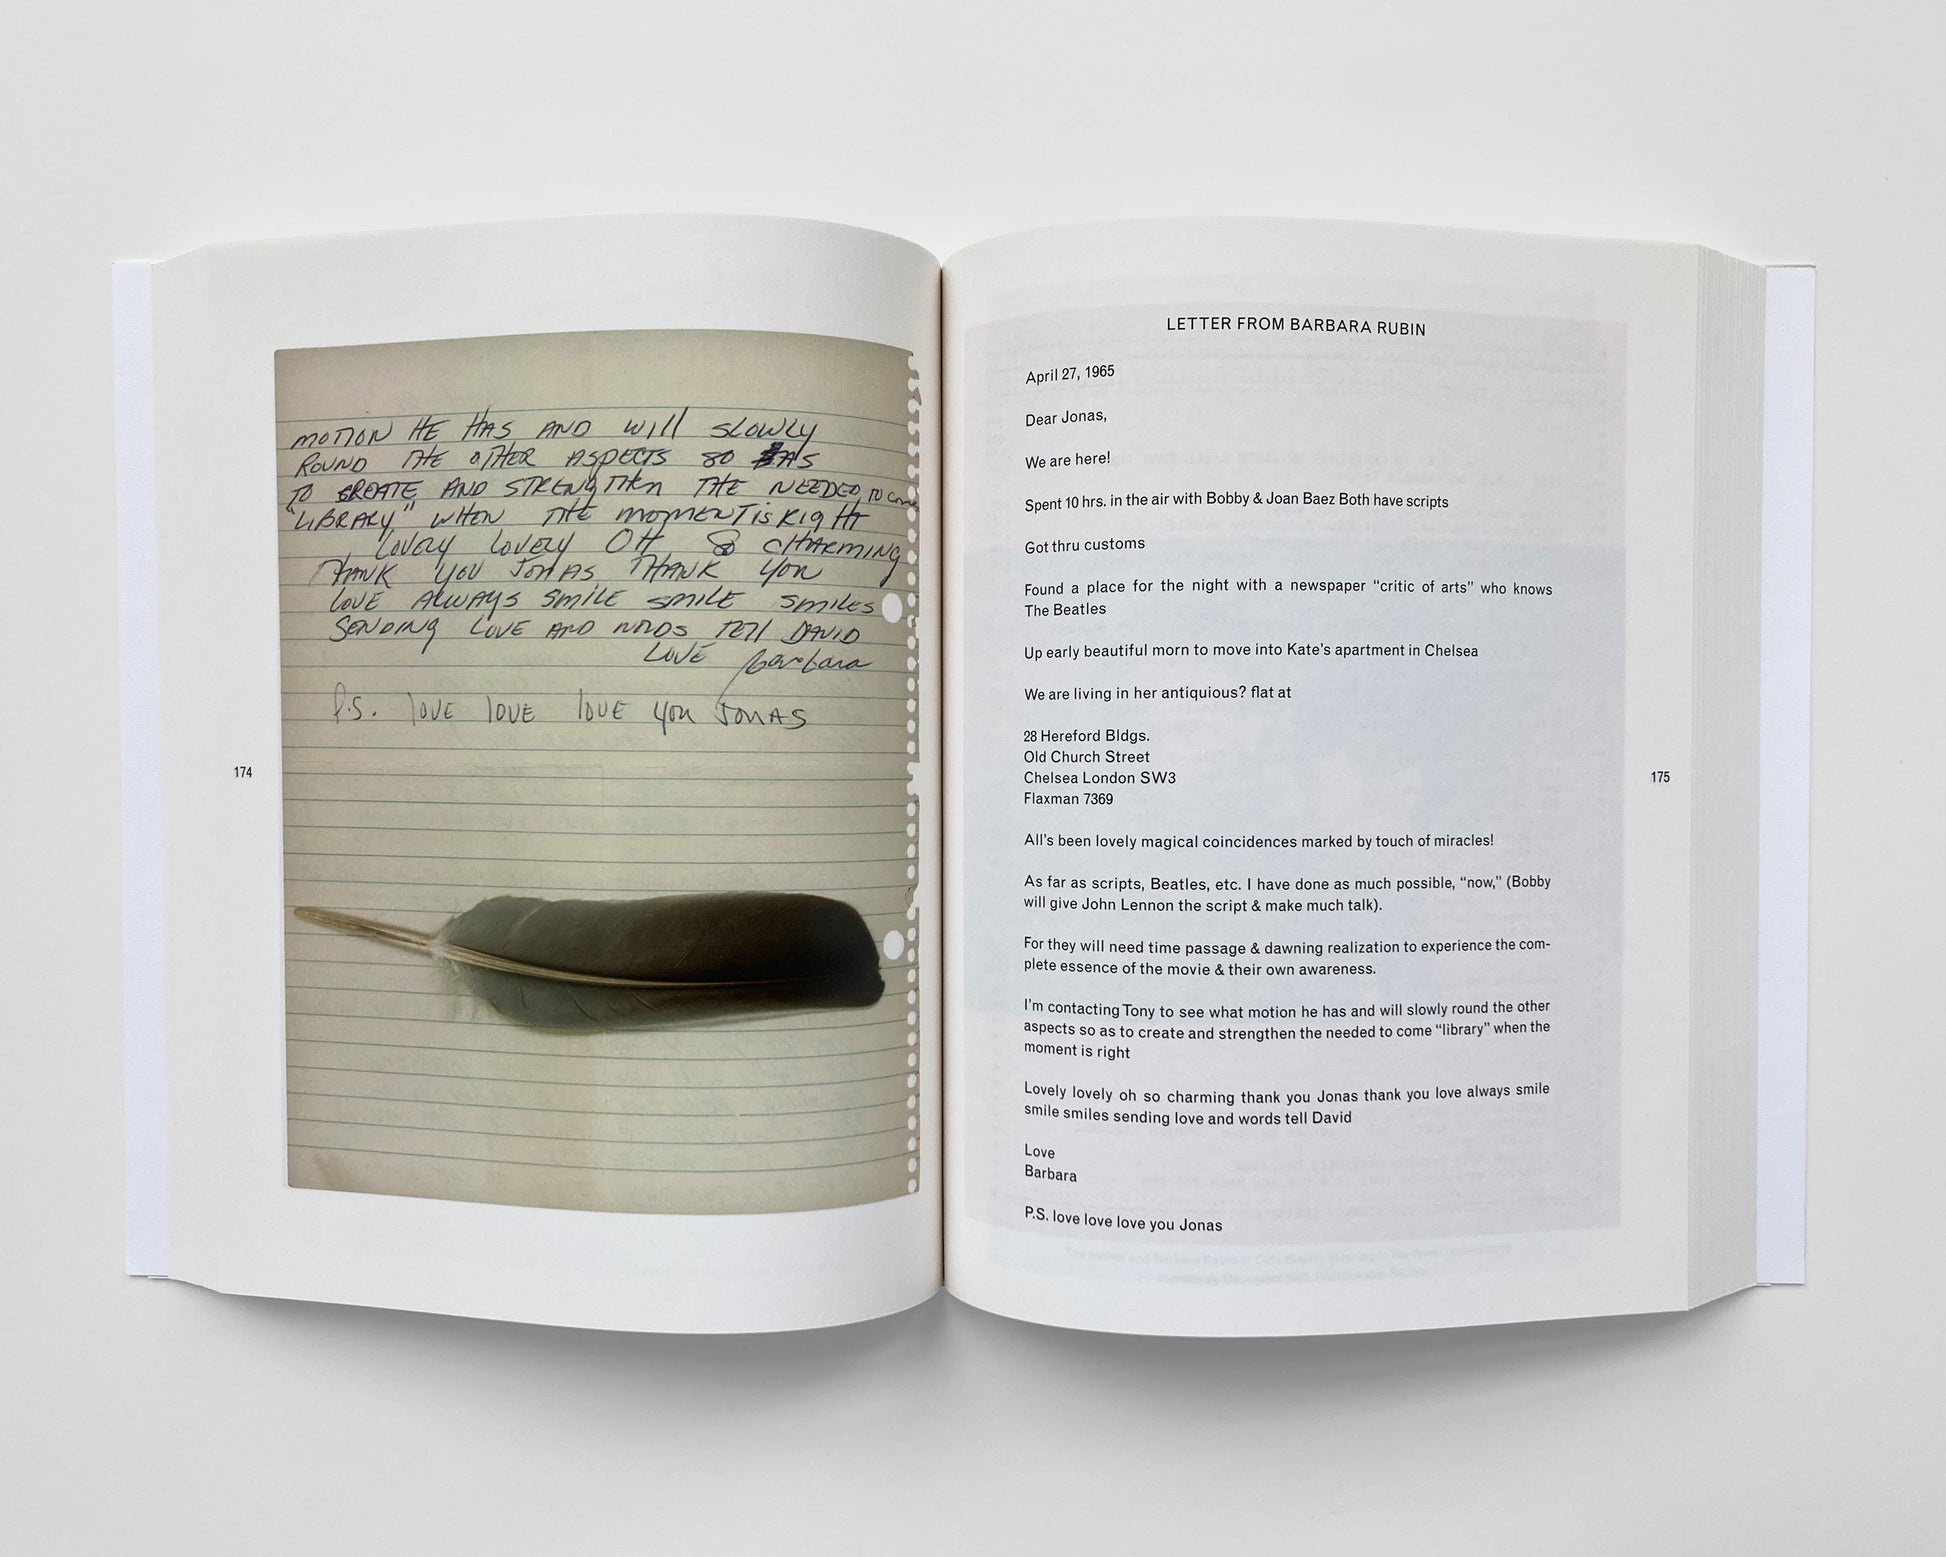 MOTION HE HAS AND WILL SLOWLY
ROUND THE OTHER ASPECTS SO AS
TO CREATE AND STRENGTHEN THE NEEDED TO COME
"LIBRARY," WHEN THE MOMENT IS RIGHT
LOVELY LOVELY OH SO CHARMING
THANK YOU JONAS THANK YOU
LOVE ALWAYS SMILE SMILE SMILES
SENDING LOVE AND WORDS TELL DAVID
LOVE Barbara
P.S. LOVE LOVE LOVE YOU JONAS
174
LETTER FROM BARBARA RUBIN
April 27, 1965
Dear Jonas,
We are here!
Spent 10 hrs. in the air with Bobby & Joan Baez Both have scripts
Got thru customs
Found a place for the night with a newspaper “critic of arts” who knows
The Beatles
Up early beautiful morn to move into Kate’s apartment in Chelsea
We are living in her antiquious? flat at
28 Hereford Bldgs.
Old Church Street
Chelsea London SW3
Flaxman 7369
All’s been lovely magical coincidences marked by touch of miracles!
As far as scripts, Beatles, etc. I have done as much possible, “now,” (Bobby
will give John Lennon the script & make much talk).
For they will need time passage & dawning realization to experience the com-
plete essence of the movie & their own awareness.
I’m contacting Tony to see what motion he has and will slowly round the other
aspects so as to create and strengthen the needed to come “library” when the
moment is right
Lovely lovely oh so charming thank you Jonas thank you love always smile
smile smiles sending love and words tell David
Love
Barbara
P.S. love love love you Jonas
175